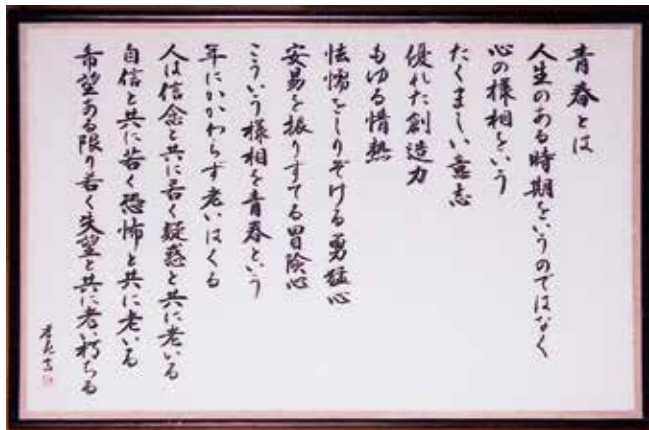 青春とは
人生のある時期をいうのではなく
心の様相をいう
たくましい意志
優れた創造力
もゆる情熱
怯懦をしりぞける勇猛心
安易を振りすてる冒険心
こういう様相を青春という
年にかかわらず老いはくる
人は信念と共に若く疑惑と共に老いる
自信と共に若く恐怖と共に老いる
希望ある限り若く失望と共に老い朽ちる